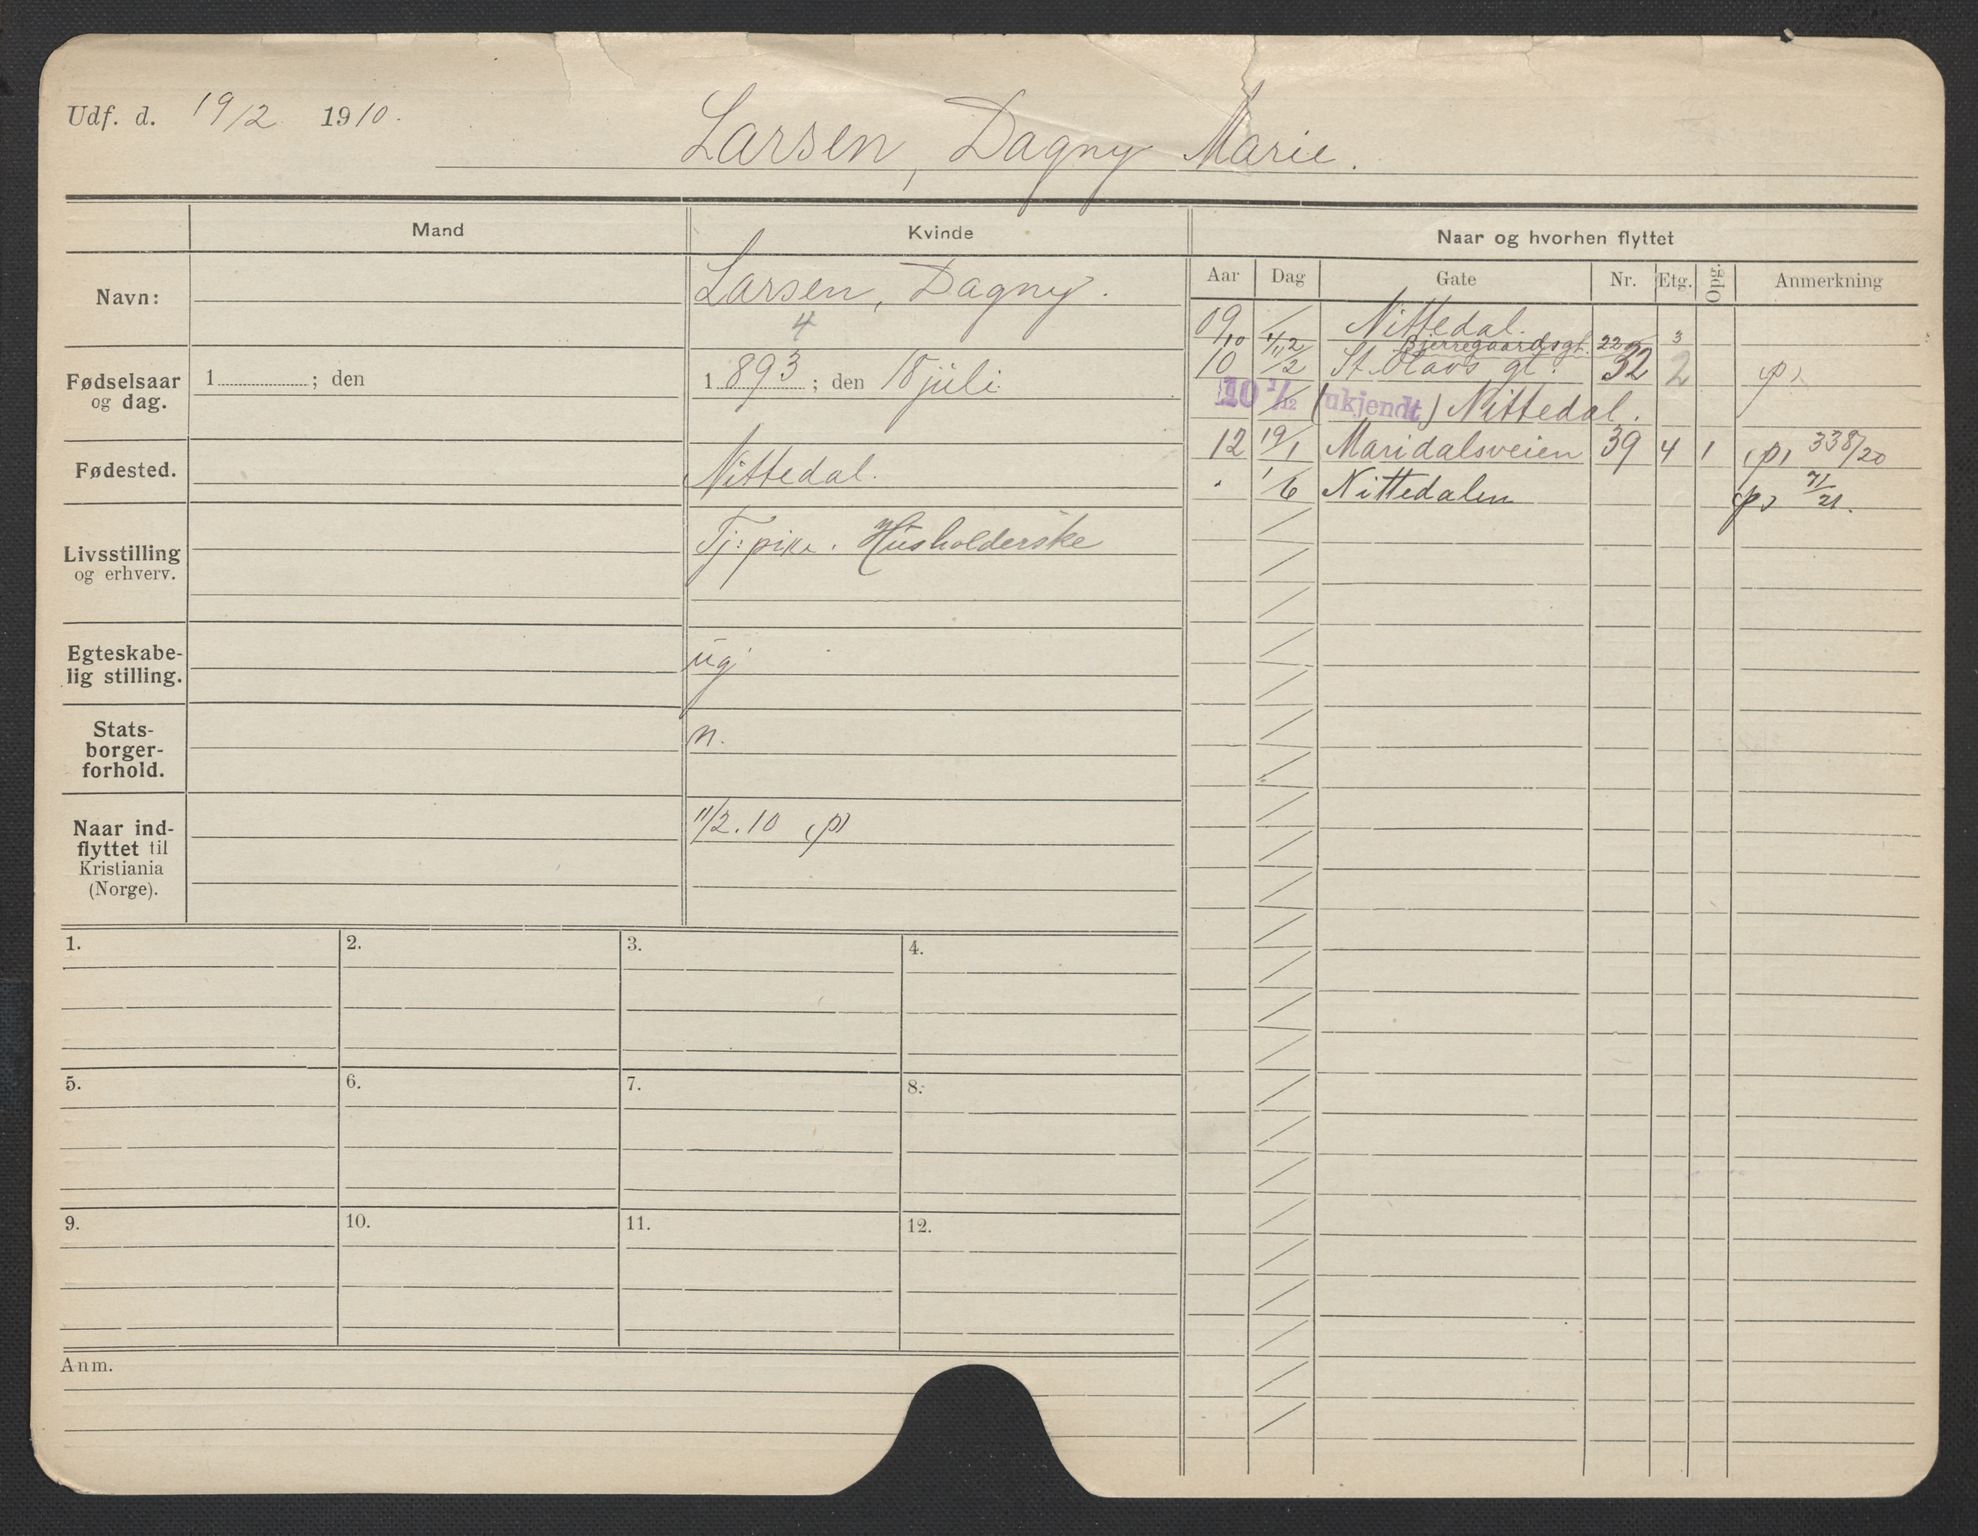 Udf. d. 19/2 1910.
Larsen, Dagny Marie.
Mand
Kvinde
Naar og hvorhen flyttet
Navn:
Larsen, Dagny.
4
Fødselsaar og dag.
1 ; den
1 893 ; den 18 juli
Fødested.
Nittedal.
Livsstilling og erhverv.
Tj: pike. Husholderske
Egteskabe-
lig stilling.
ug
Stats-
borger-
forhold.
n.
Naar ind-
flyttet til
Kristiania
(Norge).
11/2. 10 (p)
Aar Dag Gate Nr. Etg. Opg. Anmerkning
09 / Nittedal.
/10 1/12 Bjerregaardsgt. 22 3
10 11/2 St. Olavs gt. 32 2 (p)
10 1/12 (ukjendt) Nittedal.
12 19/1 Maridalsveien 39 4 1 (p) 338/20
" 1/6 Nittedalen (p) 71/21.
1. 2. 3. 4.
5. 6. 7. 8.
9. 10. 11. 12.
Anm.